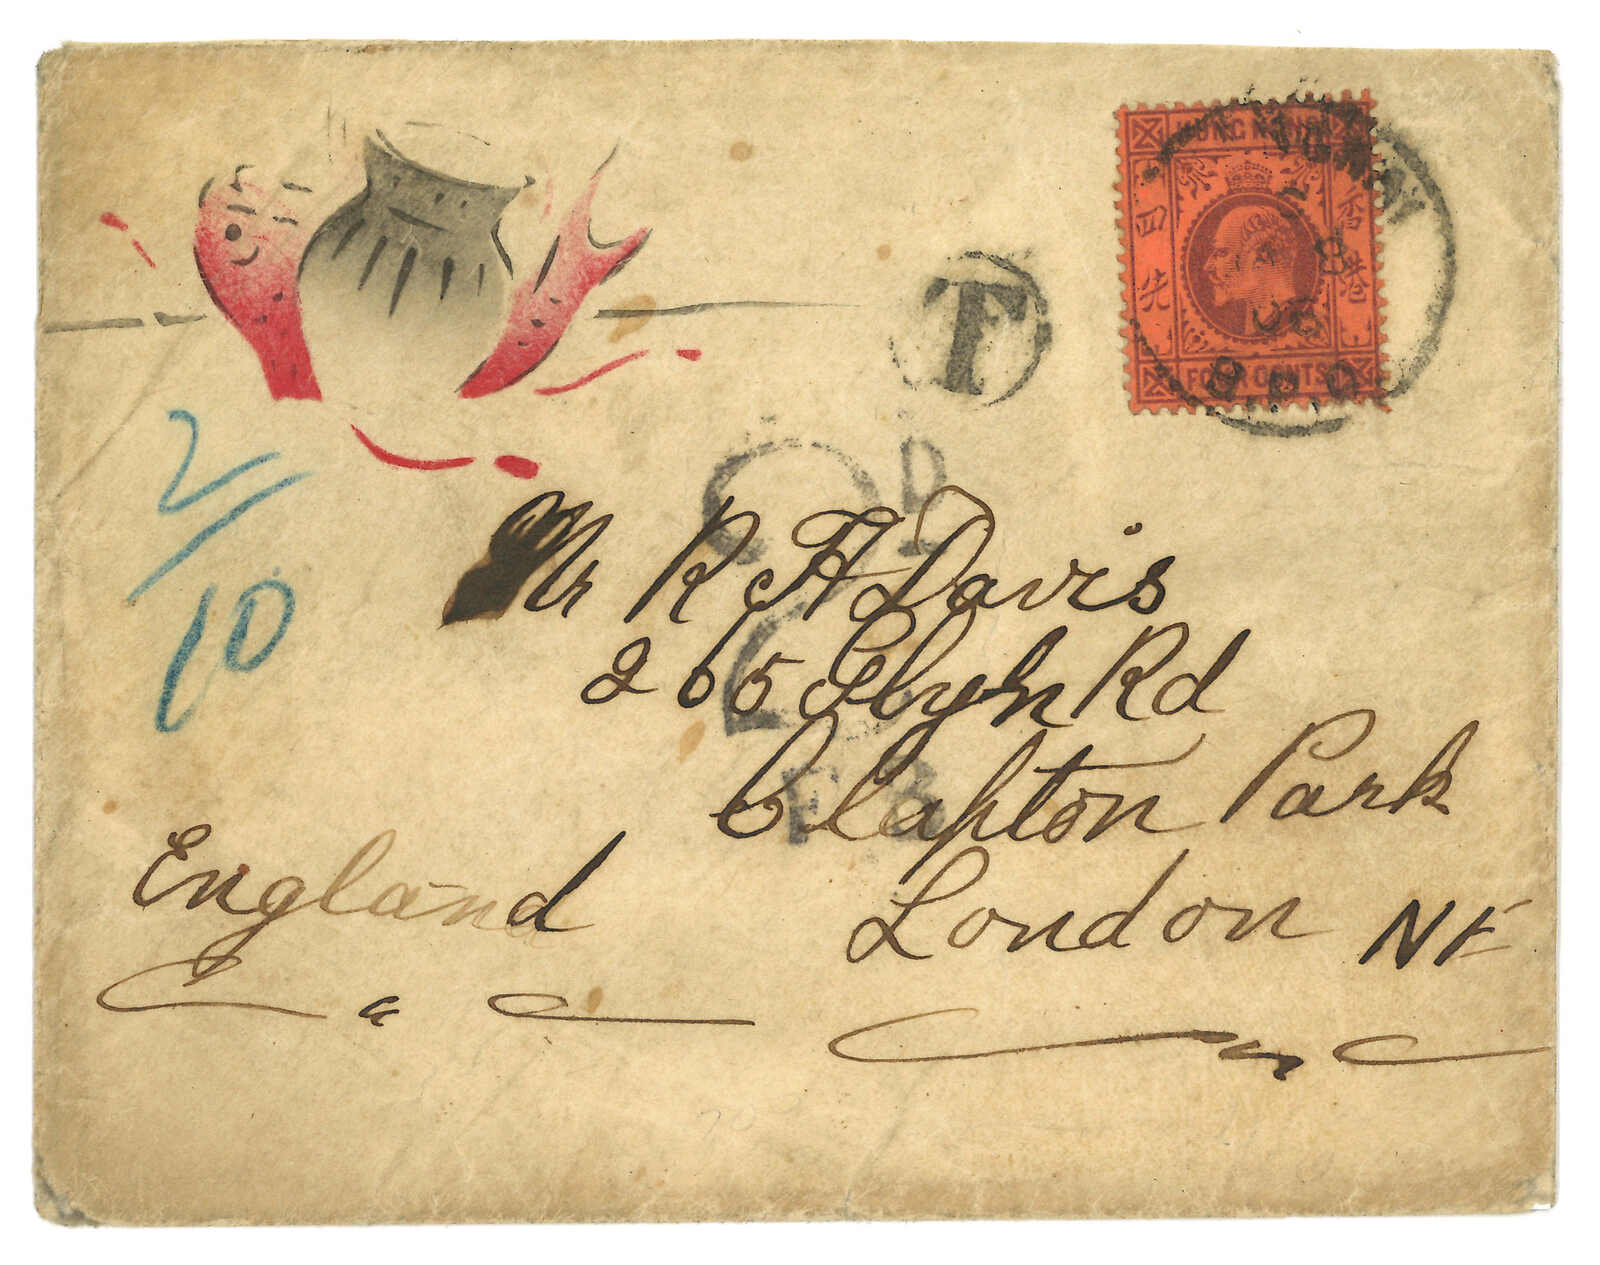 HONG KONG
四先
香港
FOUR CENTS
B.P.O.
8
06
T
D
2/10
Mr R H Davis
265 Glyn Rd
Clapton Park
London NE
England